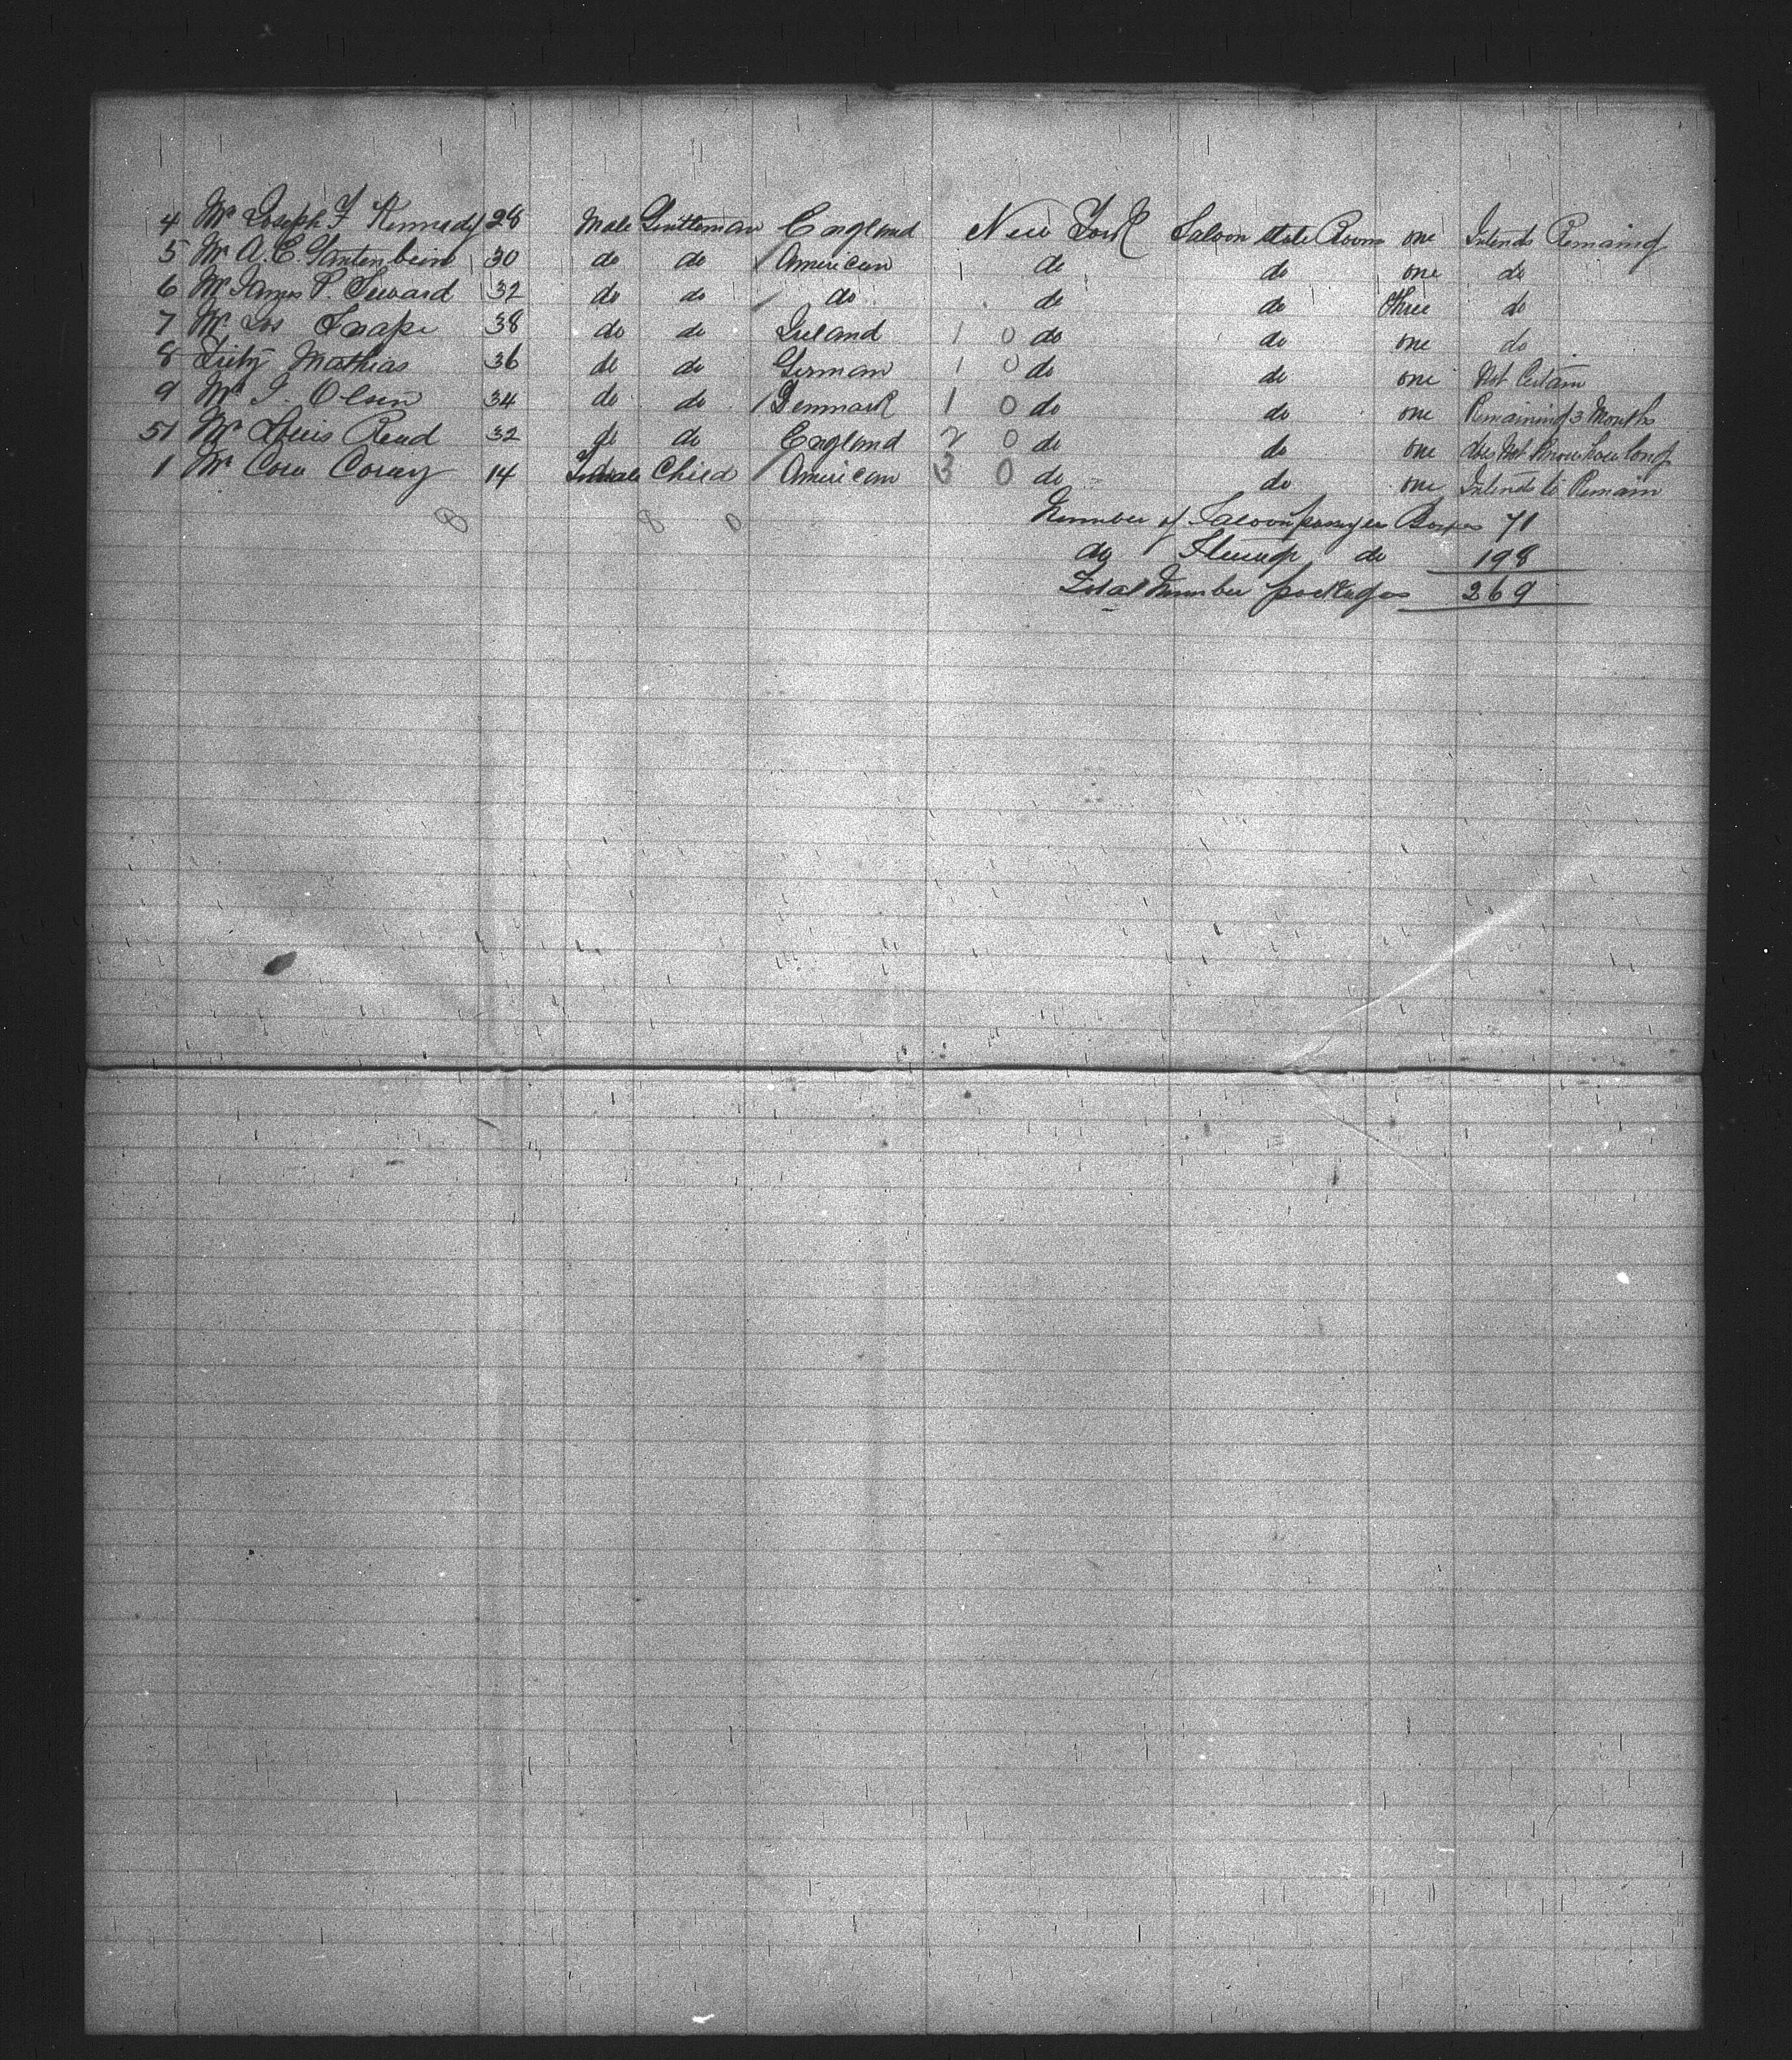 4 Mr Joseph F Kennedy 28 Male Gentleman England New York Saloon State Room one Intends Remaing
5 Mr A. E. Gantenbein 30 do do American do do one do
6 Mr James P. Seward 32 do do do do do three do
7 Mr Jos 38 do do Ireland 1 0 do do one do
8 Fritz Mathias 36 do do German 1 0 do do one Not Certain
9 Mr J. Olsen 34 do do Denmark 1 0 do do one Remaining 3 Months
51 Mr Louis Read 32 do do England 2 0 do do one does Not Know how long
1 Mr Cora 14 Female Child American 3 0 do do one Intends to Remain
8 8 0 Number of Saloon passenger Boxes 71
do Steerage do 198
Total Number packages 269